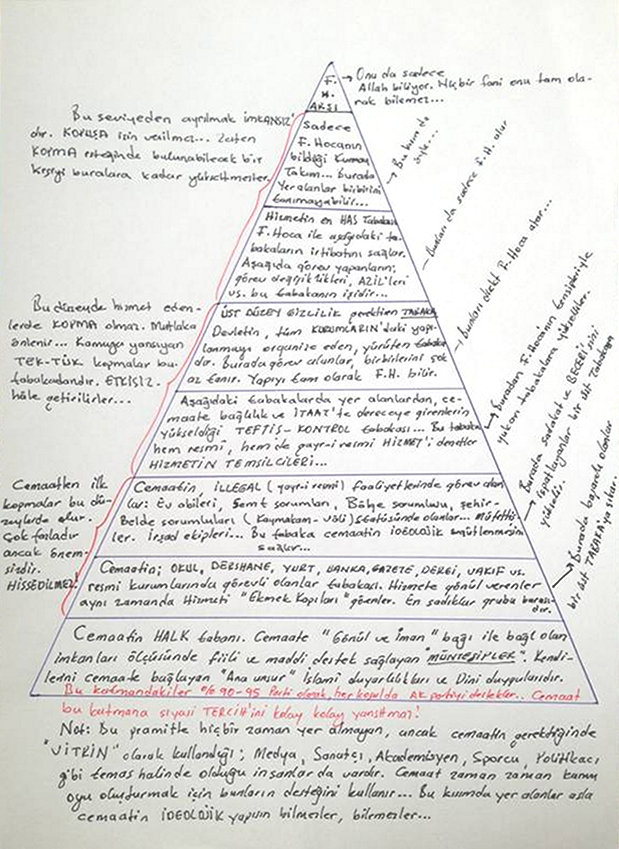 F.
H.
ARŞI
→ Onu da sadece
Allah biliyor. Hiçbir fani onu tam ola-
rak bilemez...
Sadece
F. Hocanın
bildiği Kurmay
Takım... Burada
Yer alanlar birbirini
tanımayabilir...
→ Bu kısım da
öyle...
Bu seviyeden ayrılmak İMKANSIZ
dır. KOPUŞA izin verilmez... Zaten
KOPMA isteğinde bulunabilecek bir
kişiyi buralara kadar yükseltmezler.
Hizmetin en HAS Tabakası
F. Hoca ile aşağıdaki ta-
bakaların irtibatını sağlar.
Aşağıda görev yapanların;
görev değişiklikleri, AZİL'leri
vs. bu tabakanın işidir...
Bunları da sadece F. H. atar
ÜST DÜZEY GİZLİLİK gerektiren TABAKA
Devletin, tüm KURUMLARIN'daki yapı-
lanmayı organize eden, yürüten tabaka
dır. Burada görev alanlar, birbirlerini çok
az tanır. Yapıyı tam olarak F.H. bilir.
Bunları direkt F. Hoca atar...
Bu düzeyde hizmet eden-
lerde KOPMA olmaz. Mutlaka
önlenir... Kamuya yansıyan
TEK-TÜK kopmalar bu
tabakadandır. ETKİSİZ
hâle getirilirler...
Aşağıdaki tabakalarda yer alanlardan, ce-
maate bağlılık ve İTAAT'te dereceye girenlerin
yükseldiği TEFTİŞ-KONTROL tabakası... Bu tabaka
hem resmi, hem de gayr-i resmi HİZMET'i denetler
HİZMETİN TEMSİLCİLERİ...
→ Buradan F. Hoca'nın tensipleriyle
yukarı tabakalara yükselirler.
Cemaatin İLLEGAL (gayr-i resmi) faaliyetlerinde görev alan
lar: Ev abileri, Semt sorumluları, Bölge sorumlusu, şehir-
Belde sorumluları (Kaymakam-Vâli) statüsünde olanlar... müfetti-
ler. İrşad ekipleri... Bu tabaka cemaatin İDEOLOJİK
sağlar...
→ Burada sadakat ve BECERİ'sini
ispatlayanlar bir üst Tabakaya
yükselir.
Cemaatten ilk
kopmalar bu dü-
zeylerde olur.
Çok fazladır
ancak önem-
sizdir.
HİSSEDİLMEZ!
Cemaatin; OKUL, DERSHANE, YURT, BANKA, GAZETE, DERGİ, VAKIF vs.
resmi kurumlarında görevli olanlar tabakası. Hizmete gönül verenler
aynı zamanda Hizmeti "Ekmek Kapıları" görenler. En sadıklar grubu burası
dır.
→ Burada başarılı olanlar
bir üst TABAKA'ya çıkar.
Cemaatin HALK tabanı. Cemaate "Gönül ve İman" bağı ile bağlı olan
imkanları ölçüsünde fiili ve maddi destek sağlayan "MÜNTESİPLER". Kendi-
lerini cemaate bağlayan "Ana unsur" İslami duyarlılıkları ve Dini duygularıdır.
Bu katmandakiler %90-95 Parti olarak, her koşulda AK partiyi destekler.. Cemaat
bu katmana siyasi TERCİH'ini kolay kolay yansıtmaz!
Not: Bu pramitle hiçbir zaman yer almayan, ancak cemaatin gerektiğinde
"VİTRİN" olarak kullandığı; Medya, Sanatçı, Akademisyen, Sporcu, Politikacı
gibi temas halinde olduğu insanlar da vardır. Cemaat zaman zaman kamu
oyu oluşturmak için bunların desteğini kullanır... Bu kısımda yer alanlar asla
cemaatin İDEOLOJİK yapısın bilmezler, bilemezler...